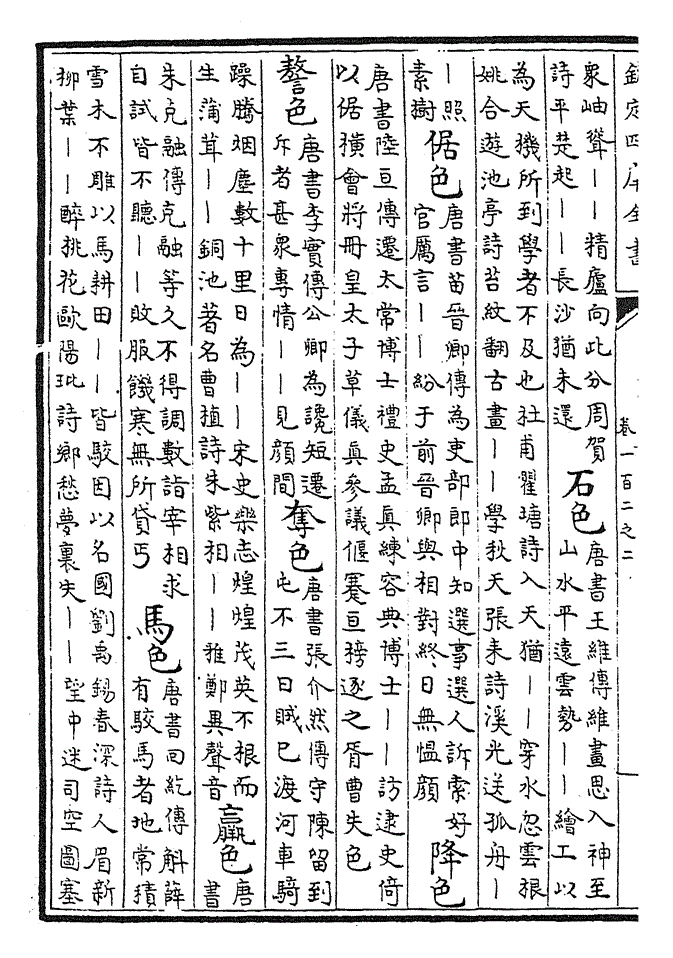 欽定四庫全書
卷一百二之二
衆岫聳——精廬向此分周賀
詩平楚起——長沙猶未還
石色
唐書王維傳維畫思入神至
山水平遠雲勢——繪工以
為天機所到學者不及也杜甫瞿塘詩入天猶——穿水忽雲根
姚合遊池亭詩苔紋翻古畫——學秋天張耒詩溪光送孤舟—
—照
素樹
倨色
唐書苗晉卿傳為吏部郎中知選事選人訴索好
官厲言——紛于前晉卿與相對終日無慍顔
降色
唐書陸亘傳遷太常博士禮史孟真練容典博士——訪逮史倚
以倨橫會將冊皇太子草儀真參議偃蹇亘榜逐之胥曹失色
謷色
唐書李實傳公卿為讒短遷
斥者甚衆專情——見顔間
奪色
唐書張介然傳守陳留到
屯不三日賊已渡河車騎
躁騰烟塵數十里日為——宋史樂志煌煌茂英不根而
生蒲茸——銅池著名曹植詩朱紫相——雅鄭異聲音
羸色
唐
書
朱克融傳克融等久不得調數詣宰相求
自試皆不聽——敗服饑寒無所貸丐
馬色
唐書回紇傳斛薛
有駮馬者地常積
雪木不雕以馬耕田——皆駮因以名國劉禹錫春深詩人眉新
柳葉——醉桃花歐陽玭詩鄉愁夢裏失——望中迷司空圖塞